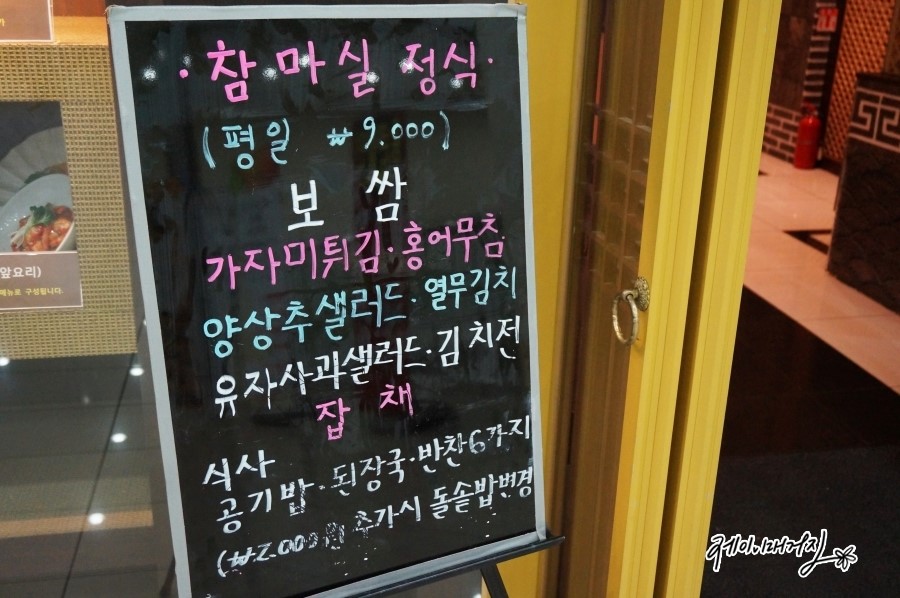 · 참 마 실 정 식 ·
(평일 ₩9.000)
보 쌈
가자미튀김 · 홍어무침
양상추샐러드 · 열무김치
유자사과샐러드 · 김치전
잡 채
식사
공기밥 · 된장국 · 반찬6가지
(₩2.000원 추가시 돌솥밥변경
앞요리)
메뉴로 구성됩니다.
케이이매거진